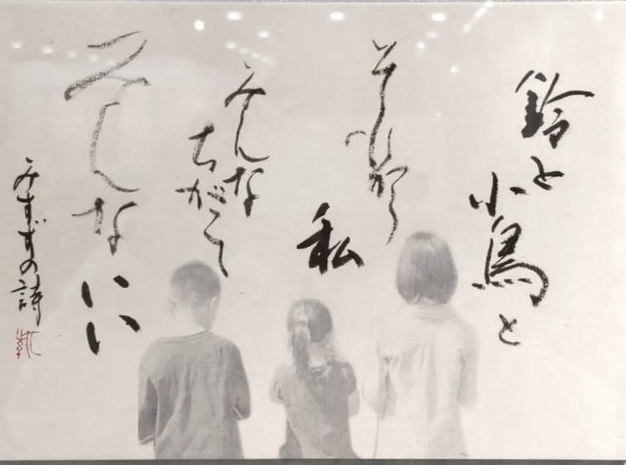 鈴と
小鳥と
それから
私
みんな
ちがって
みんないい
みすずの詩